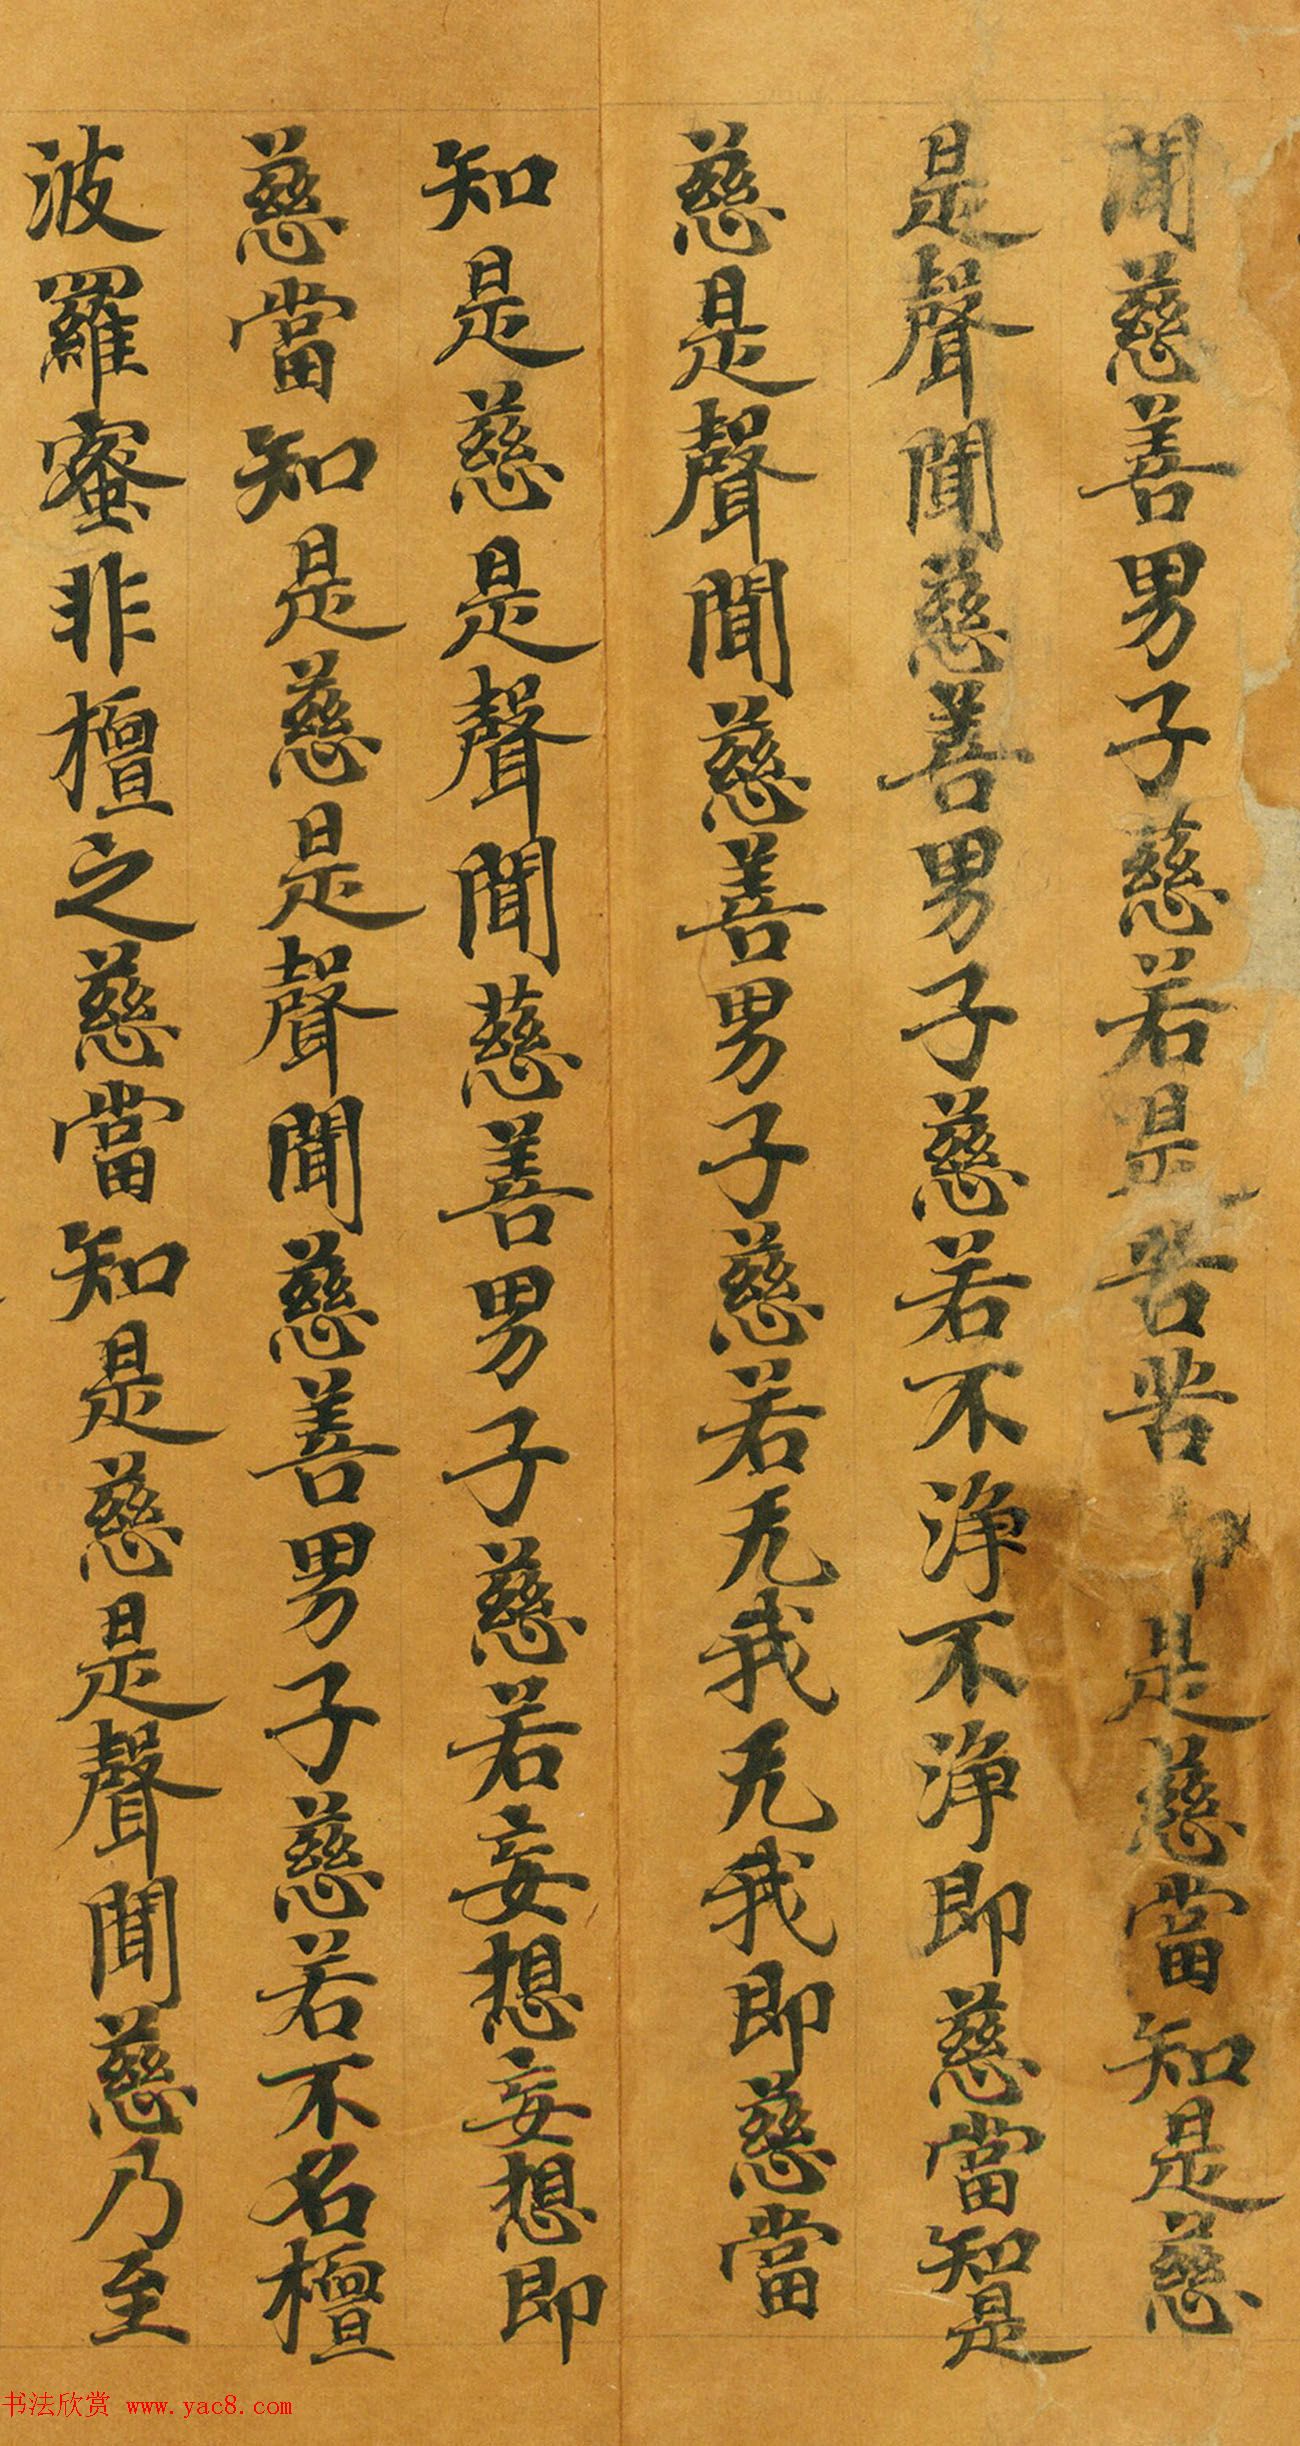 聞慈善男子慈若是苦苦即是慈當知是慈
是聲聞慈善男子慈若不淨不淨即慈當知是
慈是聲聞慈善男子慈若无我无我即慈當
知是慈是聲聞慈善男子慈若妄想妄想即
慈當知是慈是聲聞慈善男子慈若不名檀
波羅蜜非檀之慈當知是慈是聲聞慈乃至
书法欣赏 www.yac8.com